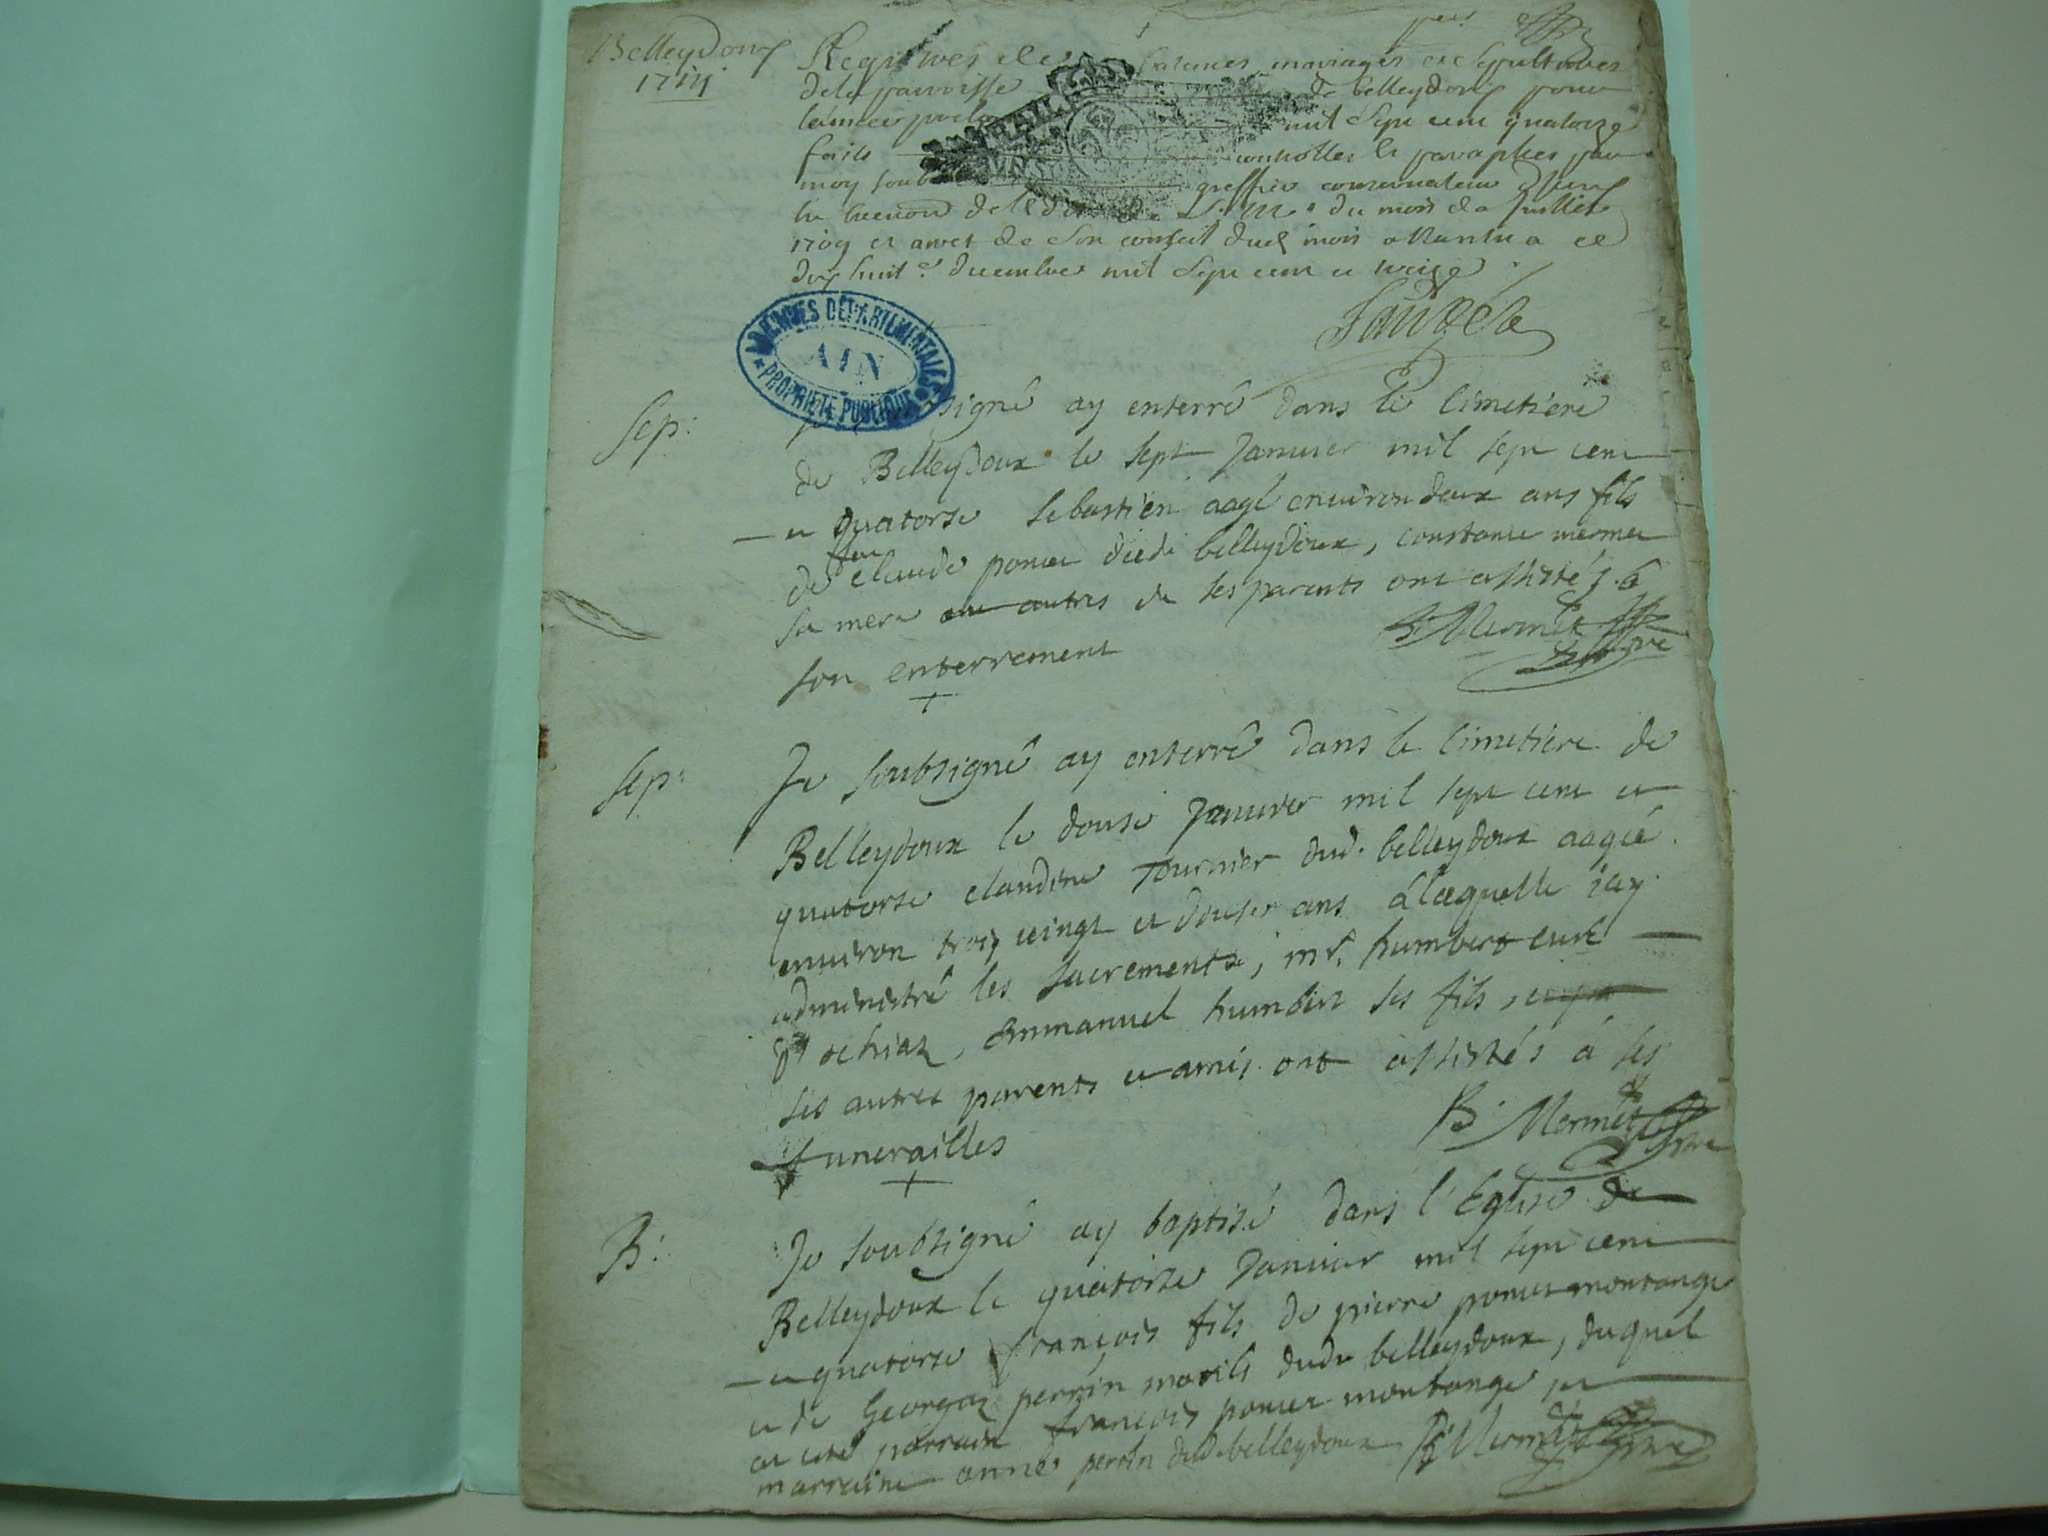 Belleydoux
1714
Regitres de batemes mariages et sepultures
de la parroisse de belleydoux pour
mil sept cent quatorze
controller et parapher par
moy soub greffier conservateur
du mois de Juillet
1709 et arret de son conseil dud mois a Nantua ce
dix huit e decembre mil sept cent et treize
ARCHIVES DÉPARTEMENTALES
AIN
PROPRIÉTÉ PUBLIQUE
Sep: signé ay enterré dans le cimetiere
de Belleydoux le sept Janvier mil sept cent
et quatorse sebastien aagé environ deux ans fils
feu
de claude poncet dudi belleydoux, constance mermet
sa mere et autres de ses parents ont assistés a
son enterrement
B. Mermet
Sep: Je soubsigné ay enterré dans le cimetiere de
Belleydoux le douse Janvier mil sept cent et
quatorse claudine Tournier dud. belleydoux aagée
environ trois vingt et douse ans à laquelle jay
administré les sacrements, mr. humbert curé
d'echiaz, Emmanuel humbert ses fils,
ses autres parents et amis ont assistés à ses
funerailles
B. Mermet
B: Je soubsigné ay baptisé dans l'Eglise de
Belleydoux le quatorse Janvier mil sept cent
et quatorse françois fils de pierre poncet montange
et de Georgaz perrin mariés dudi belleydoux, duquel
at esté parrain françois poncet montange et
marraine anne perrin dud. belleydoux B. Mermet